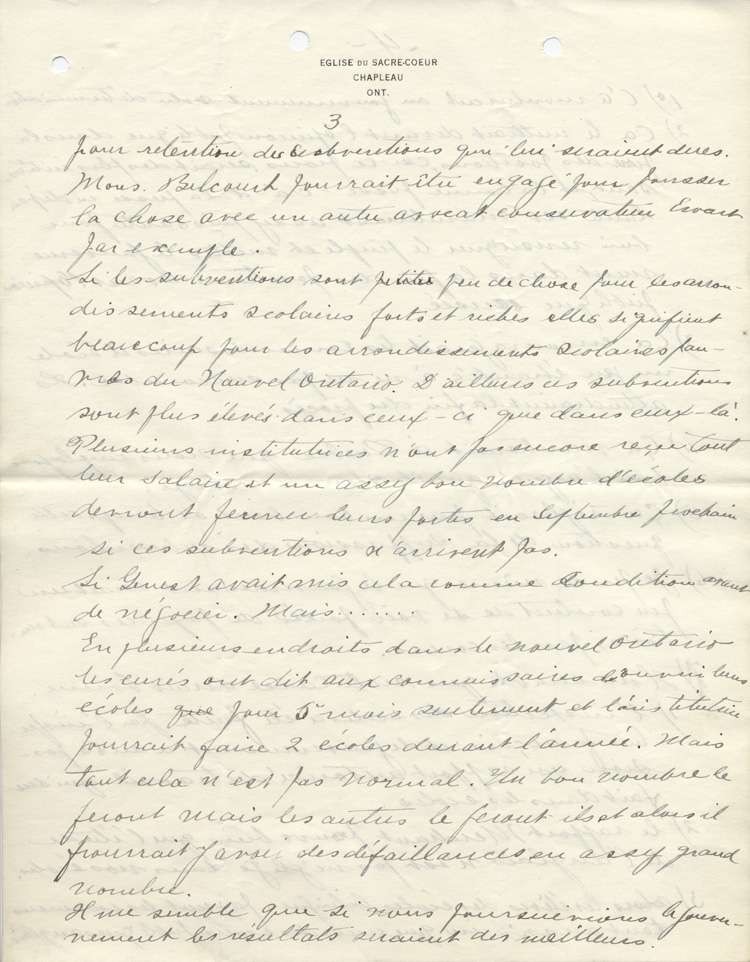 EGLISE DU SACRE-COEUR
CHAPLEAU
ONT.
3
pour retention des subventions qui lui seraient dues.
Mons. Belcourt pourrait être engagé pour pousser
la chose avec un autre avocat conservateur Ewart
par exemple.
Si les subventions sont petites peu de chose pour les arron-
dissements scolaires forts et riches elles signifient
beaucoup pour les arrondissements scolaires pau-
vres du Nouvel Ontario. D'ailleurs ces subventions
sont plus élevés dans ceux-ci que dans ceux-là.
Plusieurs institutrices n'ont pas encore reçu tout
leur salaire et un assez bon nombre d'écoles
devront fermer leurs portes en Septembre prochain
si ces subventions n'arrivent pas.
Si Genest avait mis cela comme condition avant
de négocier. Mais.......
En plusieurs endroits dans le nouvel Ontario
les curés ont dit aux commissaires d'ouvrir leurs
écoles que pour 5 mois seulement et l'institutrice
pourrait faire 2 écoles durant l'année. Mais
tout cela n'est pas normal. Un bon nombre le
feront mais les autres le feront ils et alors il
pourrait y avoir des défaillances en assez grand
nombre.
Il me semble que si nous poursuivions le gouver-
nement les résultats seraient des meilleurs.